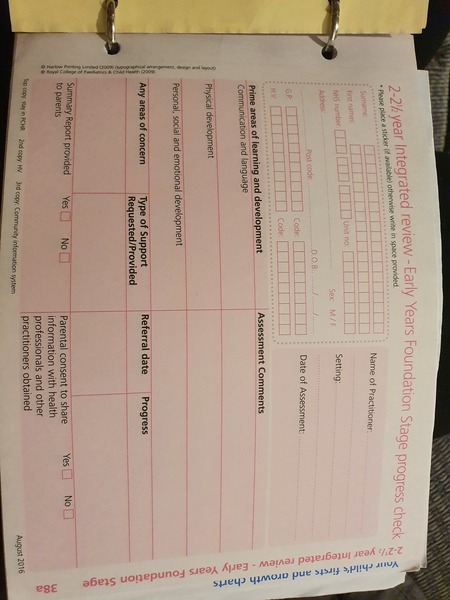 2-2½ year Integrated review - Early Years Foundation Stage progress check
• Please place a sticker (if available) otherwise write in space provided.
Surname:
First names:
NHS number: Unit no:
Address: Sex: M / F
Post code: D.O.B: / /
G.P. Code:
H.V. Code:
Name of Practitioner:
Setting:
Date of Assessment:
Prime areas of learning and development Assessment Comments
Communication and language
Physical development
Personal, social and emotional development
Any areas of concern Type of Support Requested/Provided Referral date Progress
Summary Report provided to parents Yes No Parental consent to share information with health professionals and other practitioners obtained Yes No
Top copy: stay in PCHR 2nd copy: HV 3rd copy: Community information system August 2016
© Harlow Printing Limited (2009) (typographical arrangement, design and layout)
© Royal College of Paediatrics & Child Health (2009)
Your child's firsts and growth charts
2-2½ year Integrated review - Early Years Foundation Stage 38a